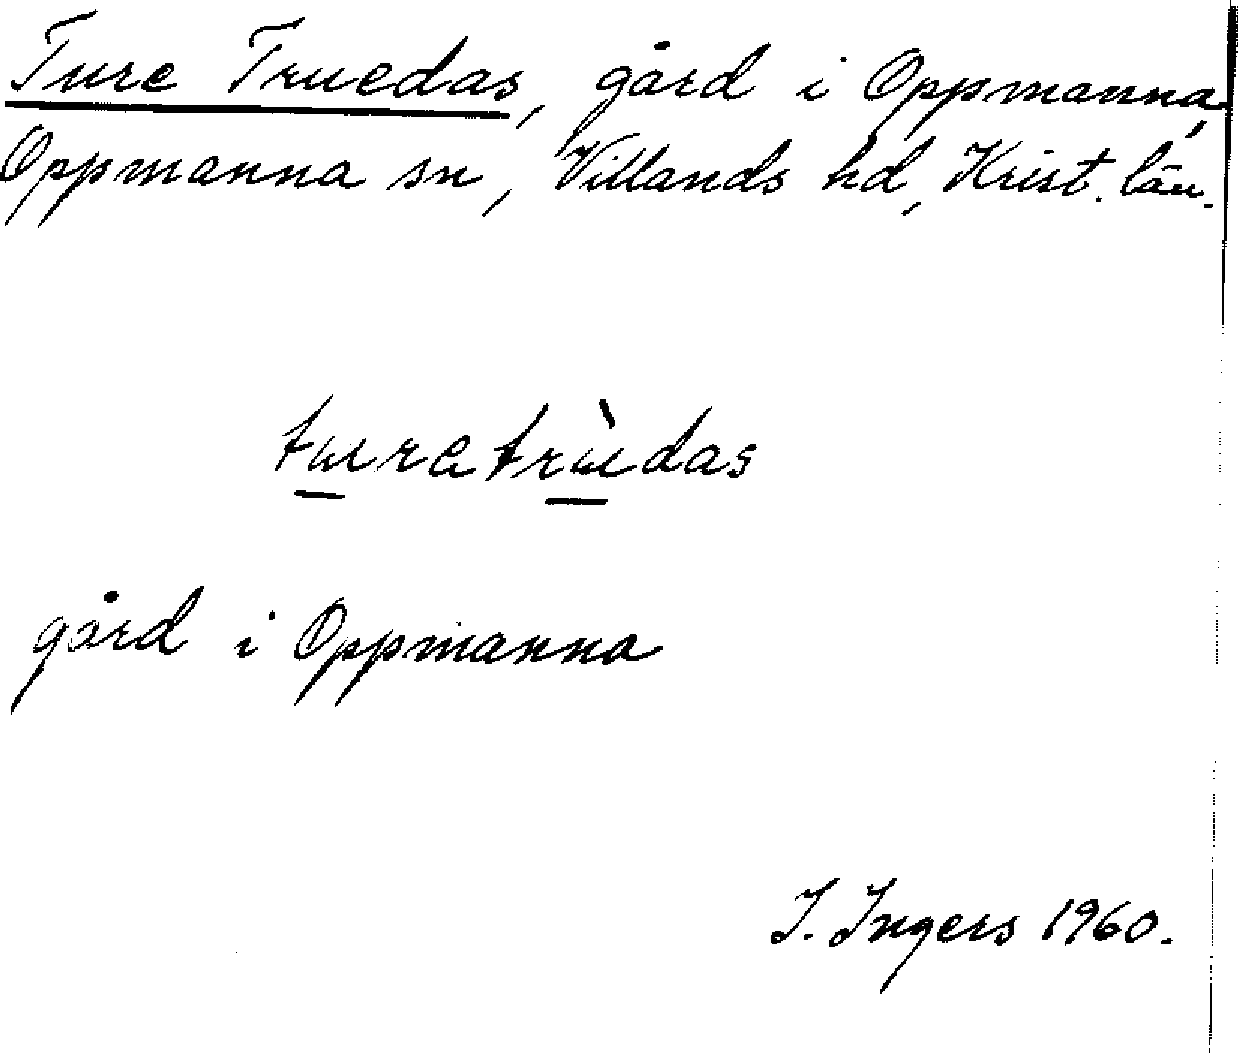 Ture Truedas, gård i Oppmanna,
Oppmanna sn, Villands hd, Krist. län.
turetrùdas
gård i Oppmanna
I. Ingers 1960.